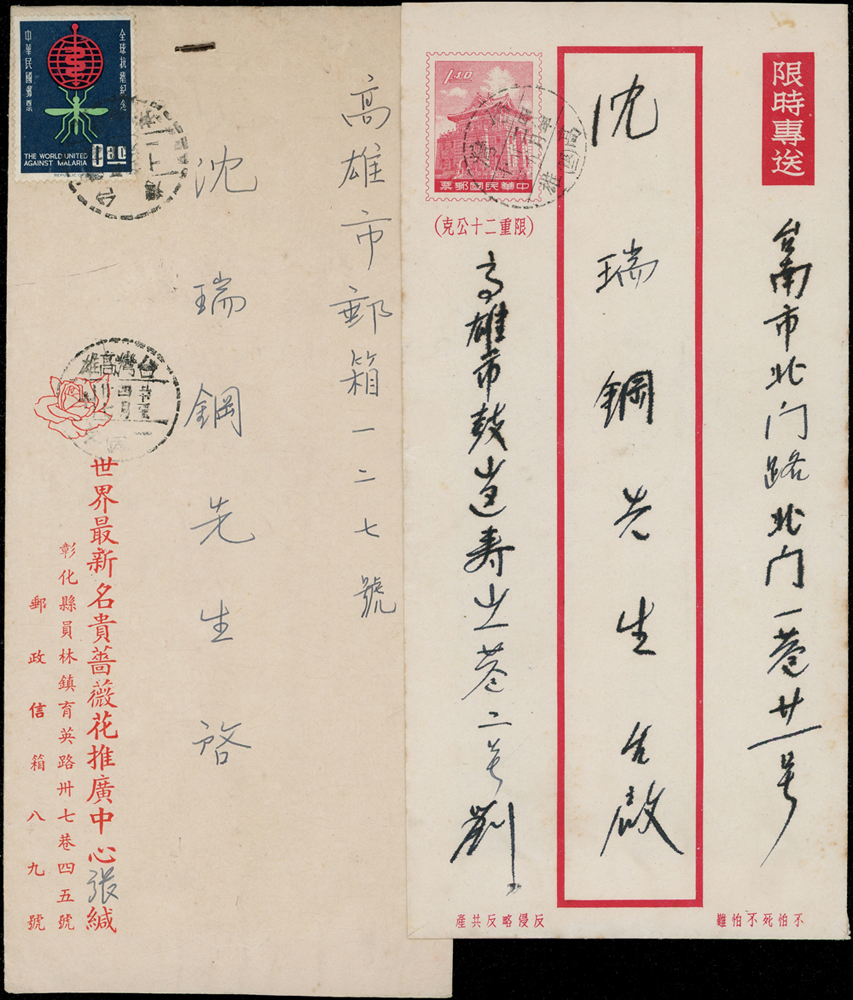 全球抗瘧紀念
中華民國郵票
THE WORLD UNITED
AGAINST MALARIA
高雄市郵箱一二七號
沈瑞鋼先生啓
世界最新名貴薔薇花推廣中心張緘
彰化縣員林鎮育英路卅七巷四五號
郵政信箱八九號
限時專送
台南市北门路北门一巷廿一号
沈瑞鋼先生 啟
1.40
中華民國郵票
(限重二十公克)
高雄市鼓山区寿山巷二号劉
不怕死不怕難
反侵略反共產